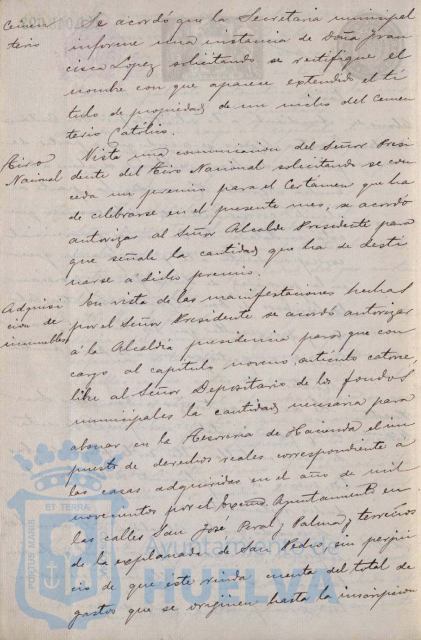 Cemen
terio
Se acordó que la Secretaria municipal
informe una instancia de Doña Fran
cisca Lopez solicitando se rectifique el
nombre con que aparece extendido el tí
tulo de propiedad de un nicho del Cemen
terio Católico.
Tiro
Nacional
Vista una comunicacion del Señor Presi
dente del Tiro Nacional solicitando se con
ceda un premio para el Certámen que ha
de celebrarse en el presente mes, se acordó
autorizar al Señor Alcalde Presidente para
que señale la cantidad que ha de desti
narse a dicho premio.
Adquisi
cion de
inmuebles
En vista de las manifestaciones hechas
por el Señor Presidente se acordó autorizar
á la Alcaldia presidencia para que con
cargo al capítulo noveno, artículo catorce,
libre al Señor Depositario de los fondos
municipales la cantidad necesaria para
abonar en la Tesoreria de Hacienda el im
puesto de derechos reales correspondiente a
las casas adquiridas en el año de mil
novecientos por el Excmo. Ayuntamiento en
las calles San José, Peral y Palma y terrenos
de la explanada de San Pedro, sin perjui
cio de que este rinda cuenta del total de
gastos que se originen hasta la inscripcion
PORTUS MARIS
ET TERRAE
Ayuntamiento de
HUELVA